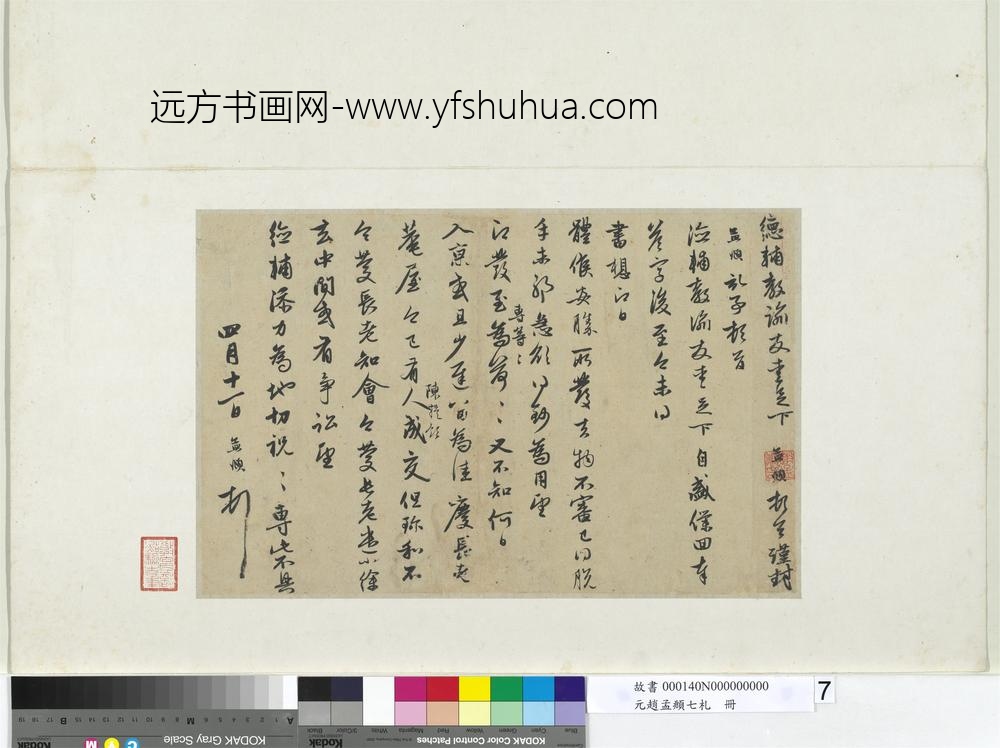 远方书画网-www.yfshuhua.com
德輔教諭友愛足下 孟頫 頓首謹封
孟頫記事頓首
德輔教諭友愛足下自盛僕回奉
答字後至今未得
書想即日
體候安勝所發去物不審已得脫
手未耶急欲得鈔為用望
即發至為荷〻專等〻又不知何日
入京或且少遲留為佳慶長老
菴屋今已有人成交但珎和不
陳提領
今慶長老知會今慶長老遣小徐
去中間或有爭訟望
德輔添力為地切祝〻專此不具
四月十一日 孟頫
故書 000140N000000000
元趙孟頫七札 冊
7
KODAK Gray Scale
KODAK Color Control Patches
Kodak
Blue
Cyan
Green
Yellow
Red
Magenta
White
3/Color
Black
A
M
B
C
Y
M
1
2
3
4
5
6
7
8
9
10
11
12
13
14
15
16
17
18
19